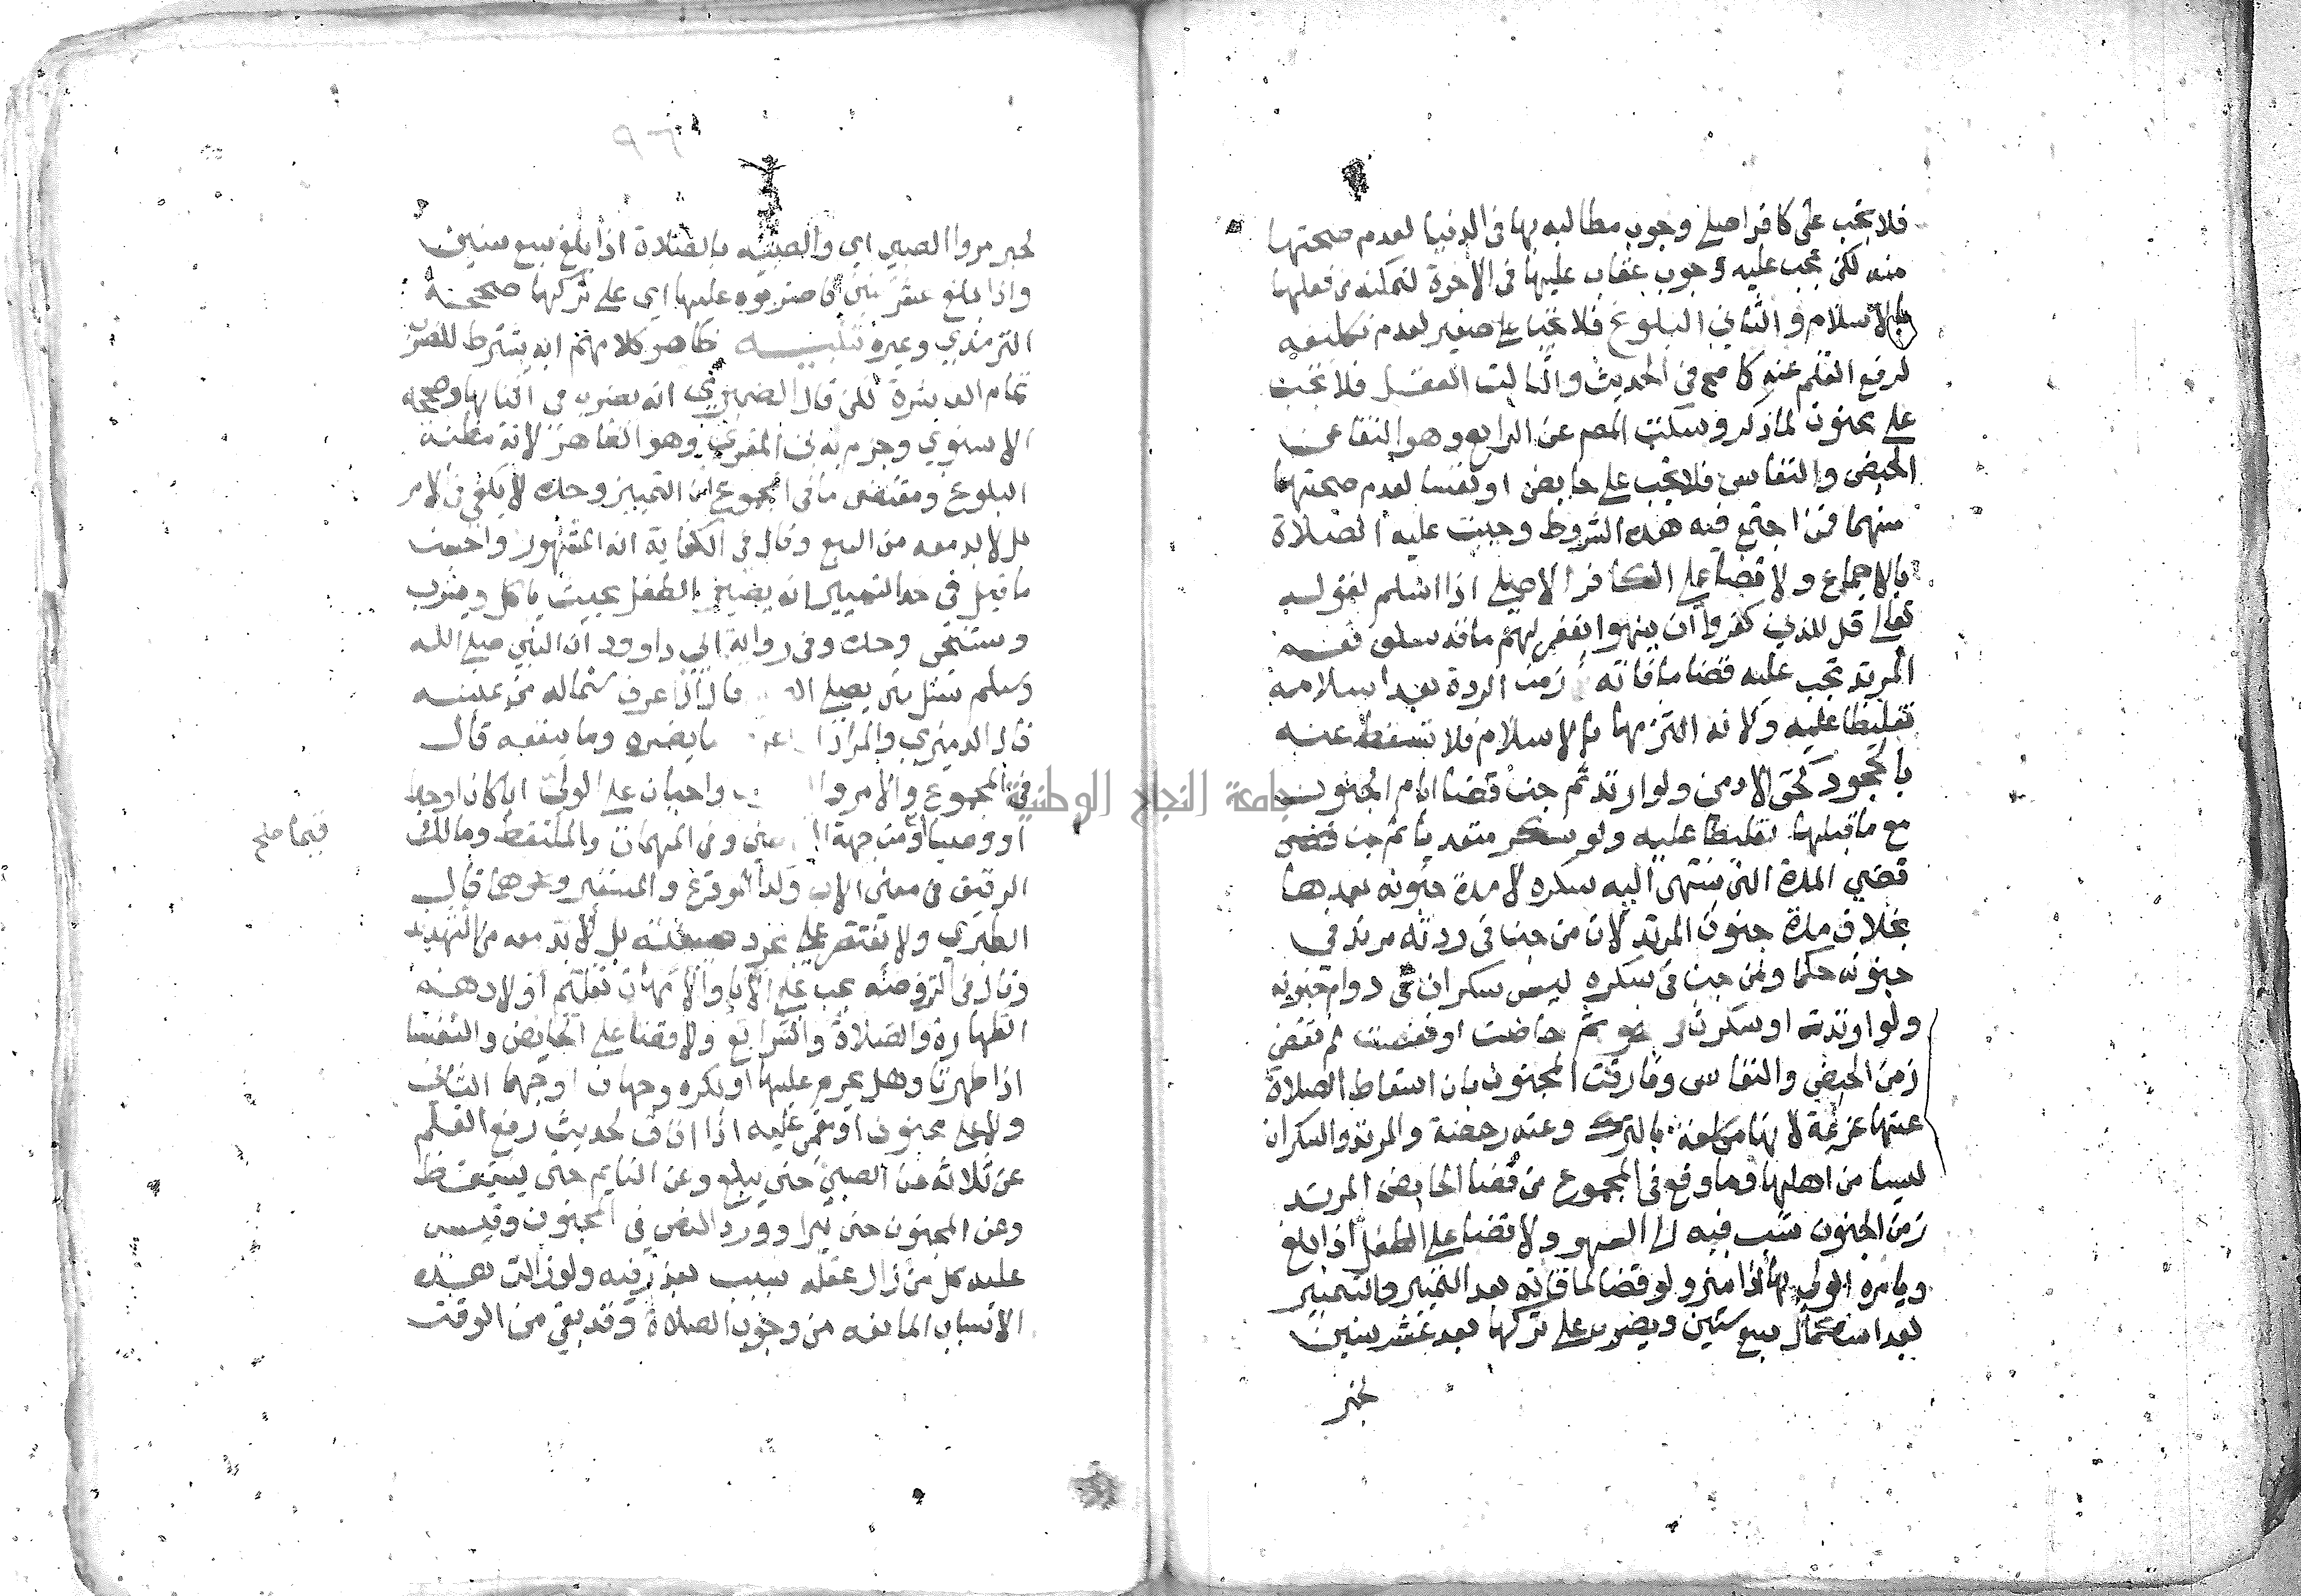 فلا تجب على كافر اصلي وجوب مطالبه بها في الدنيا لعدم صحتها
منه لكن تجب عليه وجوب عقاب عليها في الاخرة لتمكنه من فعلها
بالاسلام والثاني البلوغ فلا تجب على صغير لعدم تكليفه
لرفع القلم عنه كما صح في الحديث والثالث العقل فلا تجب
على مجنون لما ذكر وسكت المص عن الرابع وهو النقا عن
الحيض والنفاس فلا تجب على حايض او نفسا لعدم صحتها
منهما فمن اجتمع فيه هذه الشروط وجبت عليه الصلاة
بالاجماع ولا قضا على الكافر الاصلي اذا اسلم لقوله
تعالى قل للذين كفروا ان ينتهوا يغفر لهم ما قد سلف نعم
المرتد تجب عليه قضا ما فاته زمن الردة بعد اسلامه
تغليظا عليه ولانه التزمها بالاسلام فلا تسقط عنه
بالجحود كحق الادمي ولو ارتد ثم جن قضا ايام الجنون
مع ما قبلها تغليظا عليه ولو سكر متعديا ثم جن قضى
قضي المدة التي ينتهي اليه سكره لا مدة جنونه بعدها
بخلاف مدة جنون المرتد لان من جن في ردته مرتد في
جنونه حكما ومن جن في سكره ليس سكران في دوام جنونه
ولو ارتدت او سكرت ثم حاضت او نفست لم تقض
زمن الحيض والنفاس وفارقت المجنون بان اسقاط الصلاة
عنها عزيمة لانها بالترك وعنه رخصة والمرتد والسكران
ليسا من اهلها وما وقع في المجموع من قضا الحايض المرتد
زمن الجنون نسب فيه الى السهو ولا قضا على الطفل اذا بلغ
ويامره الولي بها اذا ميز ولو قضا لما فاته بعد التميز والتمييز
بعد استكمال سبع سنين ويضرب على تركها بعد عشر سنين
لخبر
٩٦
لخبر مروا الصبي اي والصبيه بالصلاة اذا بلغ سبع سنين
واذا بلغ عشر سنين فاضربوه عليها اي على تركها صححه
الترمذي وغيره تنبيه ظاهر كلامهم انه يشترط للضرب
تمام العاشرة لكن قال الصيمري انه يضرب في اثنائها وصححه
الاسنوي وجزم به ابن المقري وهو الظاهر لانه مظنة
البلوغ ومقتضى ما في المجموع ان التمييز وحده لا يكفي في الامر
بل لا بد معه من السبع وقال في الكفاية انه المشهور واحسن
ما قيل في حد التمييز انه يصير الطفل بحيث ياكل ويشرب
ويستنجي وحده وفي رواية ابي داوود ان النبي صلى الله
وسلم سئل متى يصلي قال اذا عرف شماله من يمينه
قال الدميري والمراد اذا ما يضره وما ينفعه قال
في المجموع والامر واجبان على الولي ابا كان او جدا
او وصيا او من جهة وفي المهمات والملتقط ومالك
الرقيق في معنى الاب وكذا المودع والمستعير ونحوهما قال
الطبري ولا يقتصر على مجرد صيغته بل لا بد معه من التهديد
وقال في الروضه يجب على الابا والامهات تعليم اولادهم
الطهارة والصلاة والشرايع ولا قضا على الحايض والنفسا
اذا طهرتا وهل يحرم عليها او يكره وجهان اوجهما الثاني
ولا على مجنون او مغمى عليه اذا افاق لحديث رفع القلم
عن ثلاثه عن الصبي حتى يبلغ وعن النايم حتى يستيقظ
وعن المجنون حتى يبرا وورد النص في المجنون وقيس
عليه كل من زال عقله بسبب يعذر فيه ولو زالت هذه
الاسباب المانعه من وجوب الصلاة وقد بقي من الوقت
جامعة النجاح الوطنية